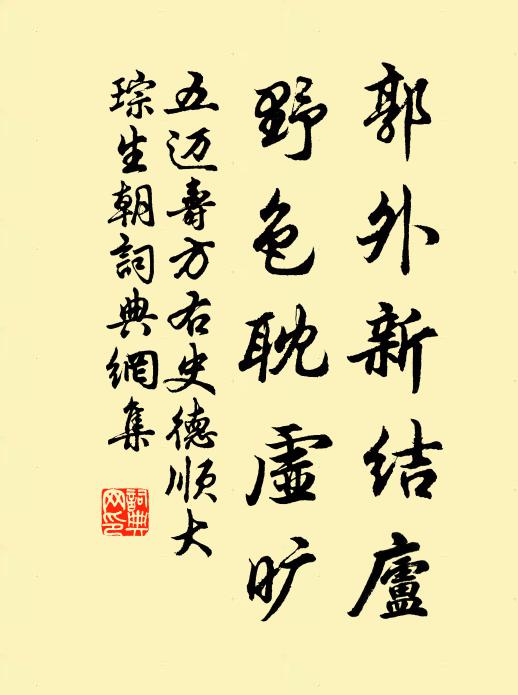 郭外新结廬
野色耽虛旷
五迈寿方右史德顺大
琮生朝詞典網集
詞典网印